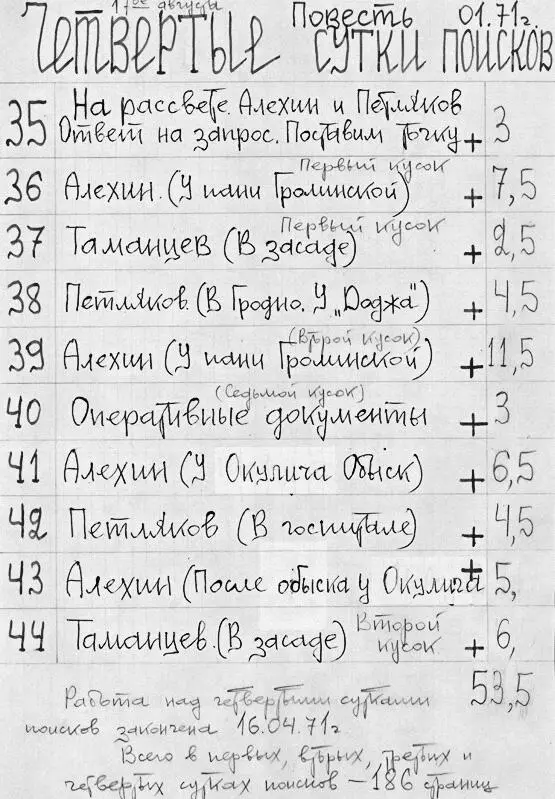 17ое августа
Повесть 01.71г.
Четвертые сутки поисков
35 На рассвете. Алехин и Петляков
Ответ на запрос. Поставим точку + 3
Первый кусок
36 Алехин. (У пани Гролинской) + 7,5
Первый кусок
37 Таманцев (В засаде) + 2,5
38 Петляков. (В Гродно. У „Доджа“) + 4,5
(Второй кусок)
39 Алехин (У пани Гролинской) + 11,5
(Седьмой кусок)
40 Оперативные документы + 3
41 Алехин (У Окулича Обыск) + 6,5
42 Петляков (В госпитале) + 4,5
43 Алехин (После обыска у Окулича + 5,
44 Таманцев. (В засаде) Второй кусок + 6,
53,5
Работа над четвертыми сутками
поисков закончена 16.04.71г.
Всего в первых, вторых, третьих и
четвертых сутках поисков – 186 страниц